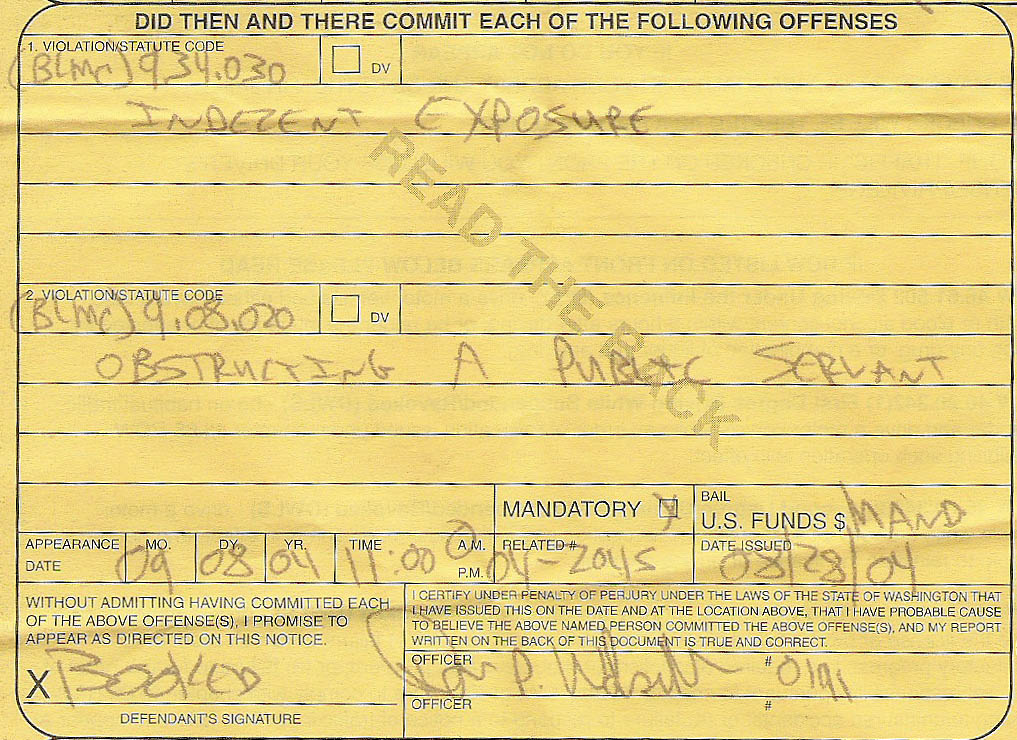 DID THEN AND THERE COMMIT EACH OF THE FOLLOWING OFFENSES
1. VIOLATION/STATUTE CODE
(BLMC) 9.34.030 DV
INDECENT EXPOSURE
READ THE BACK
2. VIOLATION/STATUTE CODE
(BLMC) 9.08.020 DV
OBSTRUCTING A PUBLIC SERVANT
MANDATORY X
BAIL
U.S. FUNDS $ MAND
APPEARANCE DATE
MO. DY. YR. TIME A.M. P.M.
09 08 04 11:00
RELATED #
04-2045
DATE ISSUED
08/28/04
WITHOUT ADMITTING HAVING COMMITTED EACH
OF THE ABOVE OFFENSE(S), I PROMISE TO
APPEAR AS DIRECTED ON THIS NOTICE.
X BOOKED
DEFENDANT'S SIGNATURE
I CERTIFY UNDER PENALTY OF PERJURY UNDER THE LAWS OF THE STATE OF WASHINGTON THAT
I HAVE ISSUED THIS ON THE DATE AND AT THE LOCATION ABOVE, THAT I HAVE PROBABLE CAUSE
TO BELIEVE THE ABOVE NAMED PERSON COMMITTED THE ABOVE OFFENSE(S), AND MY REPORT
WRITTEN ON THE BACK OF THIS DOCUMENT IS TRUE AND CORRECT.
OFFICER P. # 0191
OFFICER #